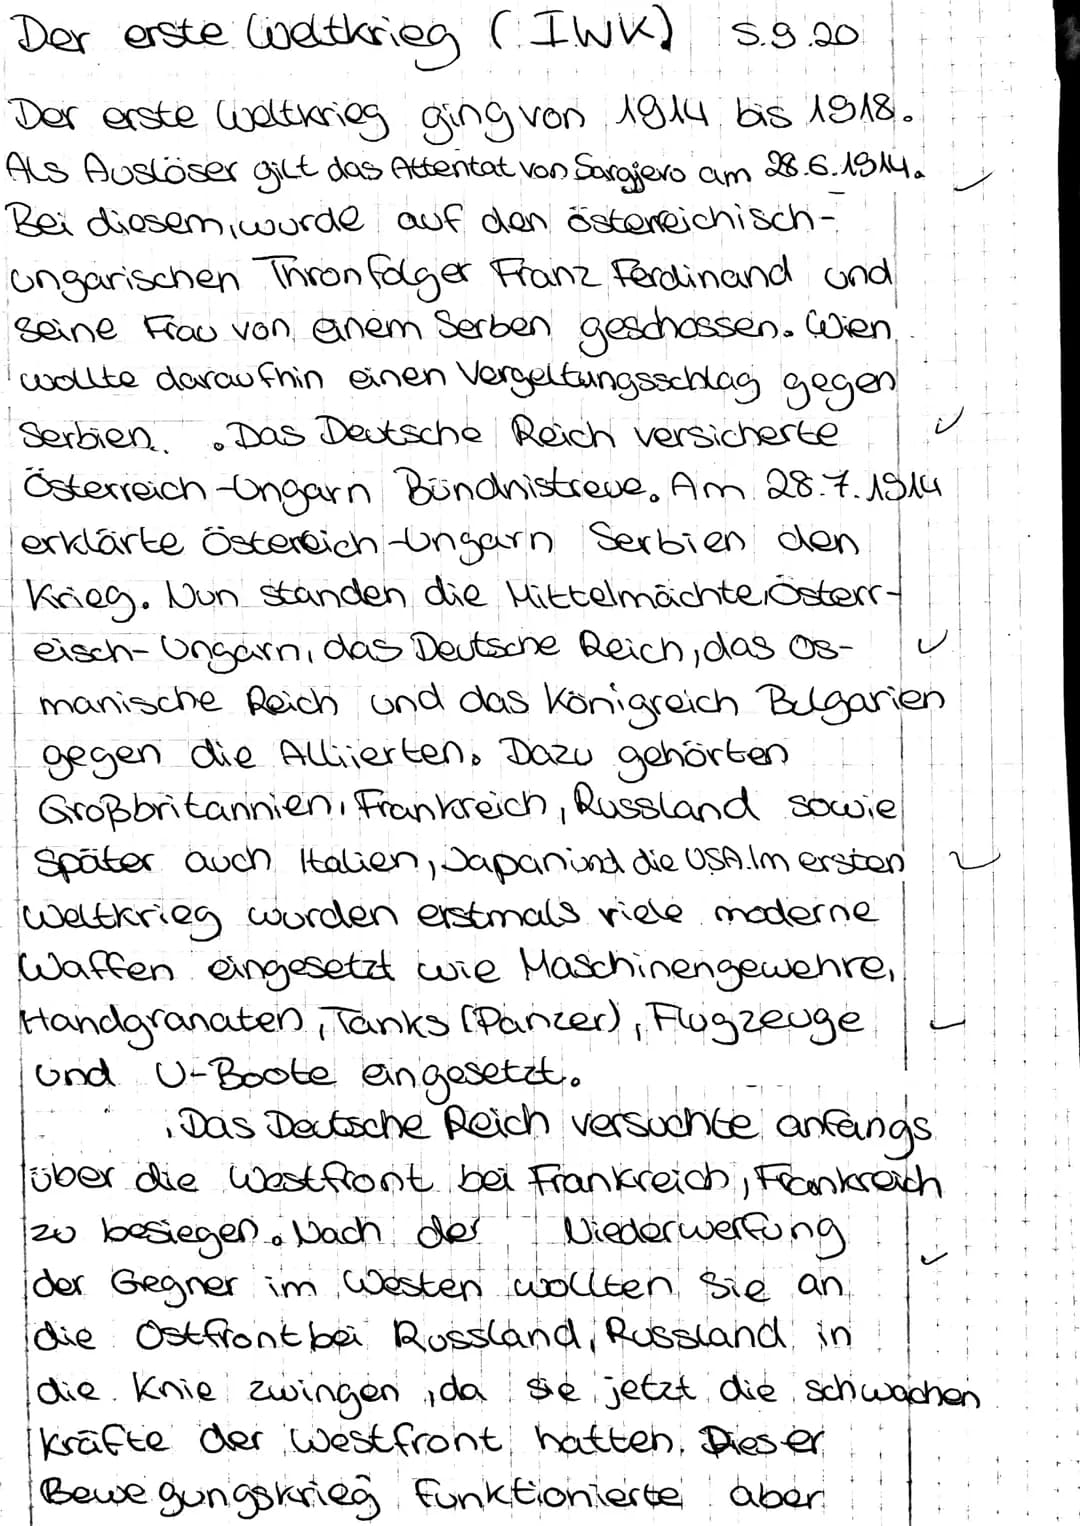 Der erste Weltkrieg (IWK) 5.9.20
Der erste Weltkrieg ging von 1914 bis 1918.
Als Auslöser gilt das Attentat von Sargjero am 28.6.1914.
Bei diesem, wurde auf den östereichisch-
ungarischen Thronfolger Franz Ferdinand und
seine Frau von einem Serben geschossen. Wien
wollte daraufhin einen Vergeltungsschlag gegen
Serbien. Das Deutsche Reich versicherte
Österreich-Ungarn Bündnistreue. Am 28.7.1914
erklärte Östereich-Ungarn Serbien den
Krieg. Nun standen die Mittelmächte, Österr-
eisch-Ungarn, das Deutsche Reich, das Os-
manische Reich und das Königreich Bulgarien
gegen die Alliierten. Dazu gehörten
Großbritannien, Frankreich, Russland sowie
später auch Italien, Japan und die USA. Im ersten
Weltkrieg wurden erstmals viele moderne
Waffen eingesetzt wie Maschinengewehre,
Handgranaten, Tanks (Panzer), Flugzeuge
und U-Boote eingesetzt.
Das Deutsche Reich versuchte anfangs
über die Westfront bei Frankreich, Frankreich
zu besiegen. Nach der Niederwerfung
der Gegner im Westen wollten sie an
die Ostfront bei Russland, Russland in
die Knie zwingen, da sie jetzt die schwachen
kräfte der Westfront hatten. Dieser
Bewegungskrieg funktionierte aber